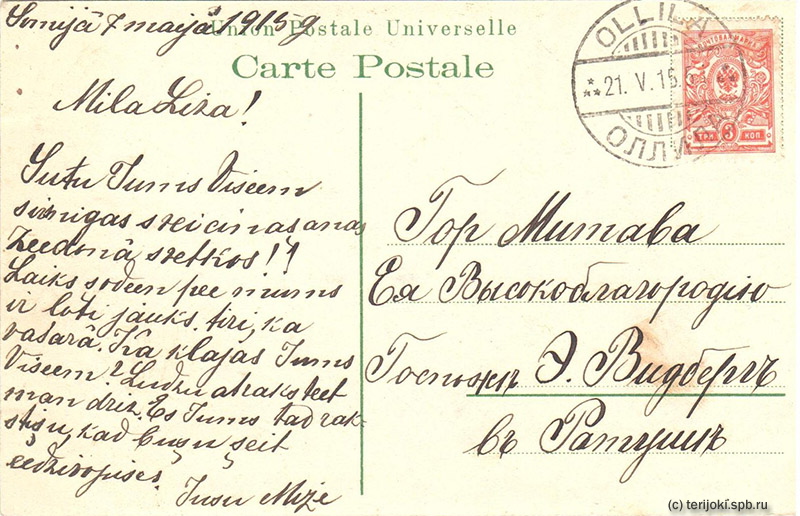 Somijā 7 maijā 1915 g
Union Postale Universelle
Carte Postale
Mila Liza!
Sutu Jums Viseem
sirsnigas sveicinasanas
Zeedonā svetkos!!
Laiks sodeen pee mums
ir loti jauks, tiri, ka
vasarā. Ka klajas Jums
Viseem? Ludzu atraksteet
man driz. Es Jums tad rak-
stisu, kad busu šeit
eedzivojuses.
Jusu Mize
OLLILA
21. V. 15.
ОЛЛИЛА
ТРИ 3 КОП.
Гор Митава
Ея Высокоблагородію
Госпожѣ Э. Видбергъ
въ Ратушѣ
(c) terijoki.spb.ru